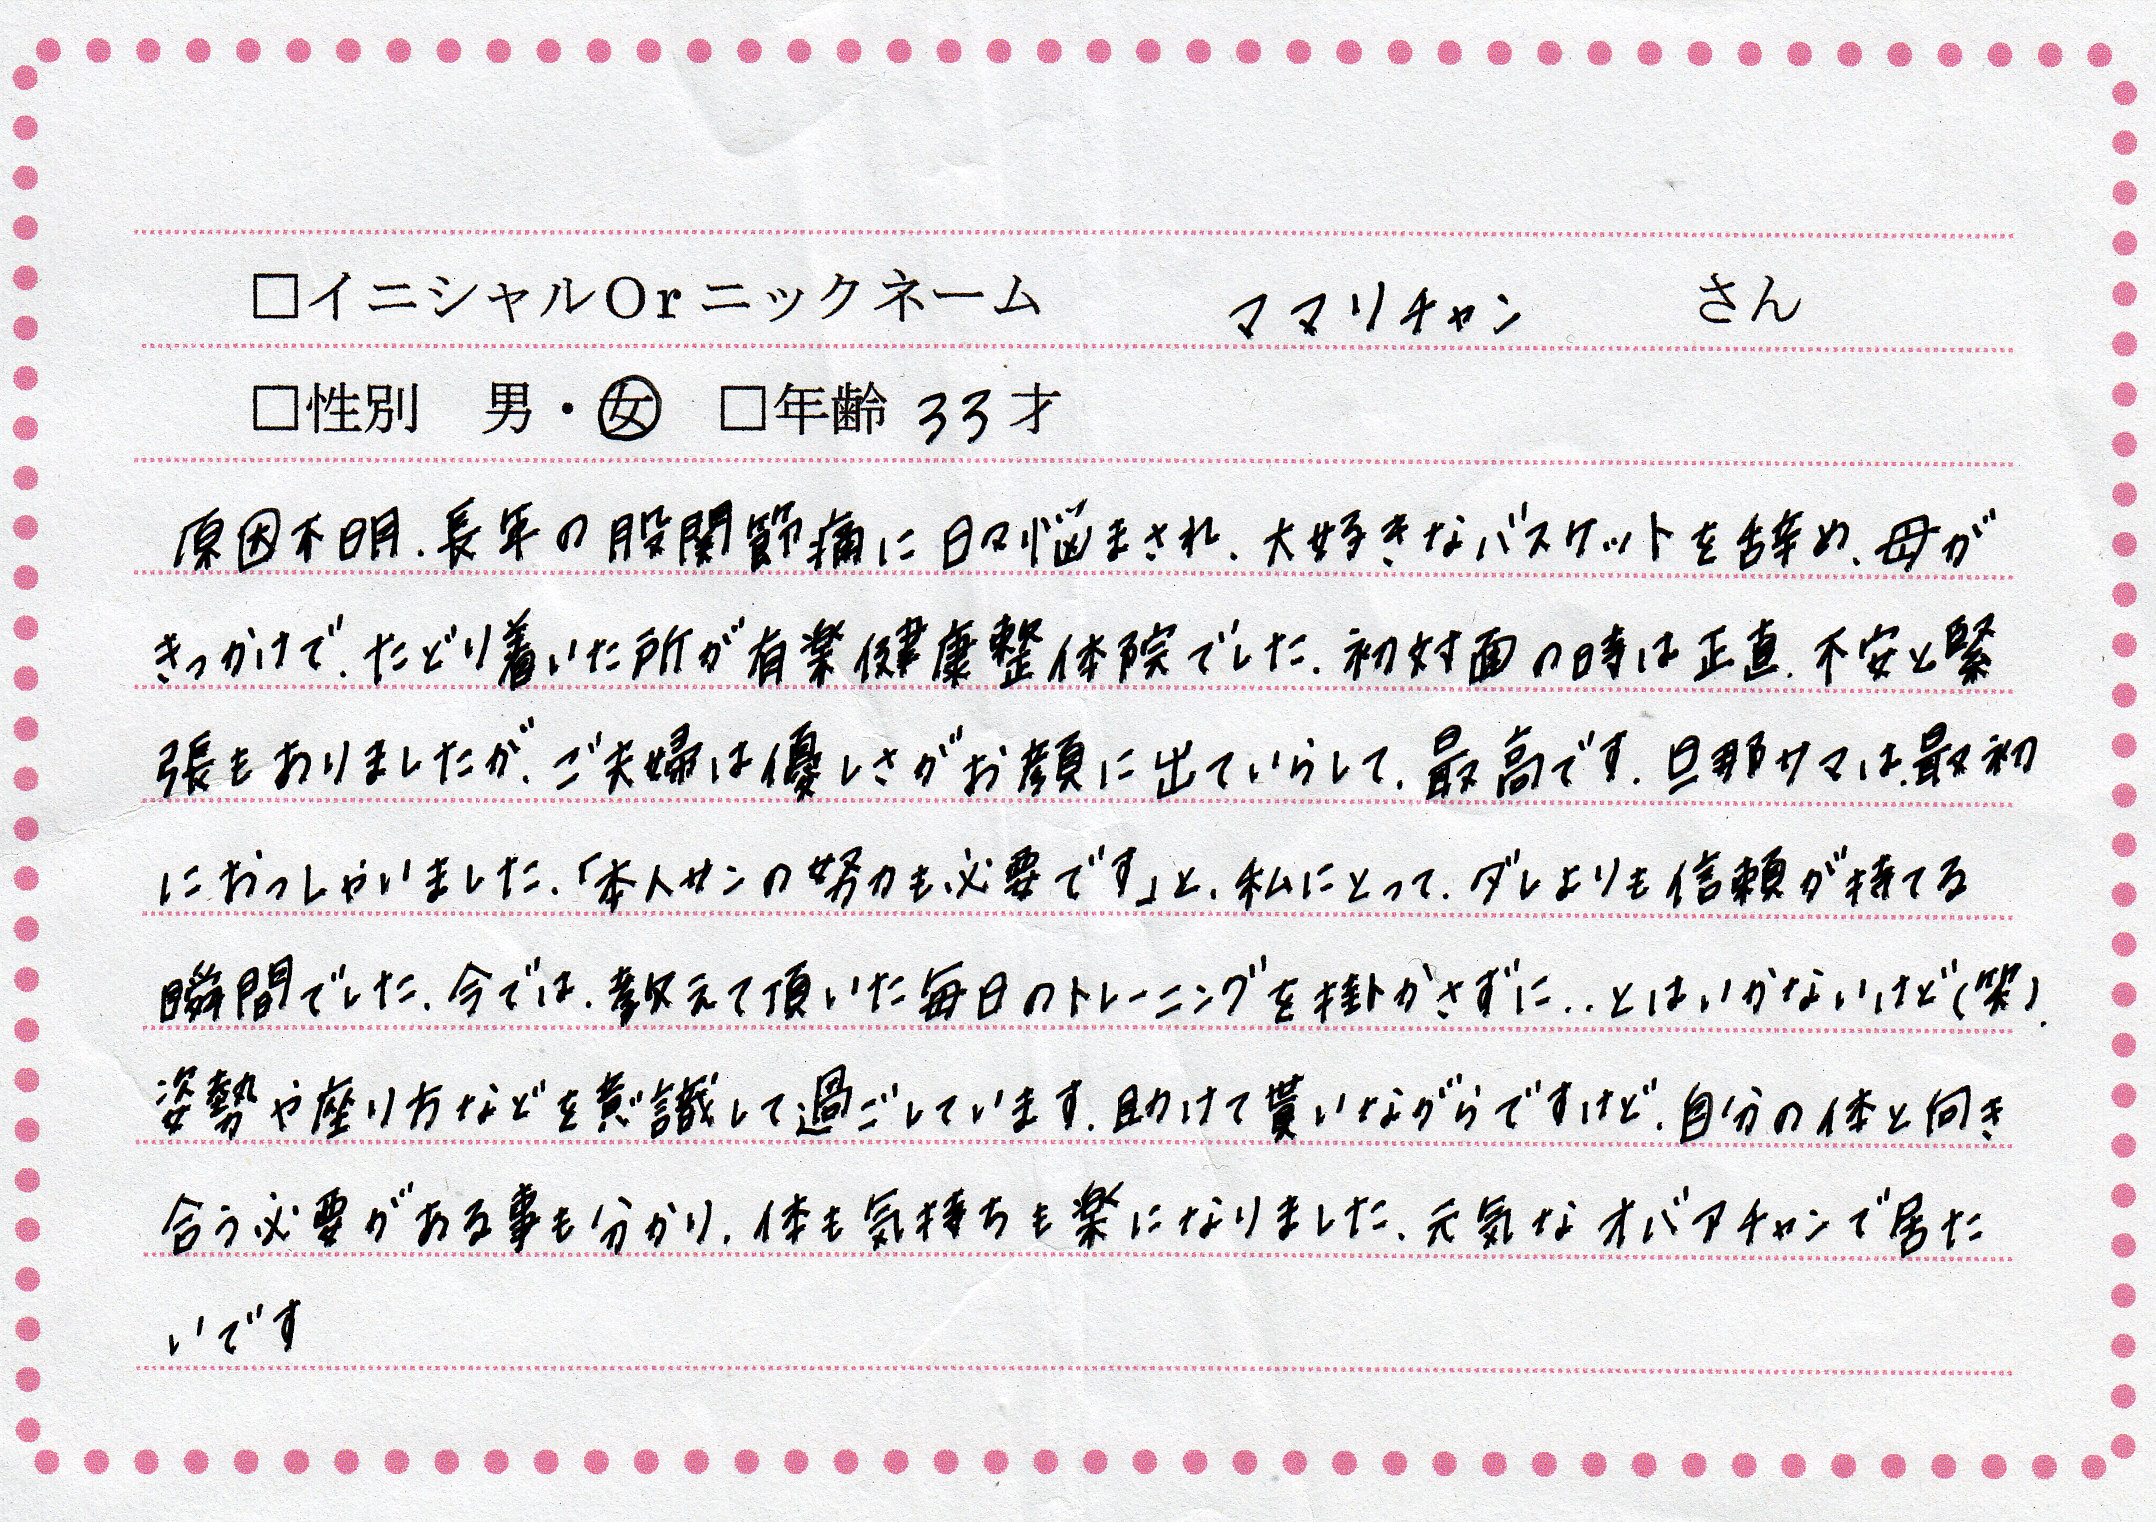 □イニシャルOrニックネーム ママリチャン さん
□性別 男・女 □年齢 33才
原因不明、長年の股関節痛に日々悩まされ、大好きなバスケットを辞め、母が
きっかけで、たどり着いた所が有楽健康整体院でした。初対面の時は正直、不安と緊
張もありましたが、ご夫婦は優しさがお顔に出ていらして、最高です。旦那サマは、最初
におっしゃいました、「本人サンの努力も必要です」と、私にとって、ダレよりも信頼が持てる
瞬間でした。今では、教えて頂いた毎日のトレーニングを掛かさずに..とはいかないけど(笑)、
姿勢や座り方などを意識して過ごしています。助けて貰いながらですけど、自分の体と向き
合う必要がある事も分かり、体も気持ちも楽になりました。元気なオバアチャンで居た
いです